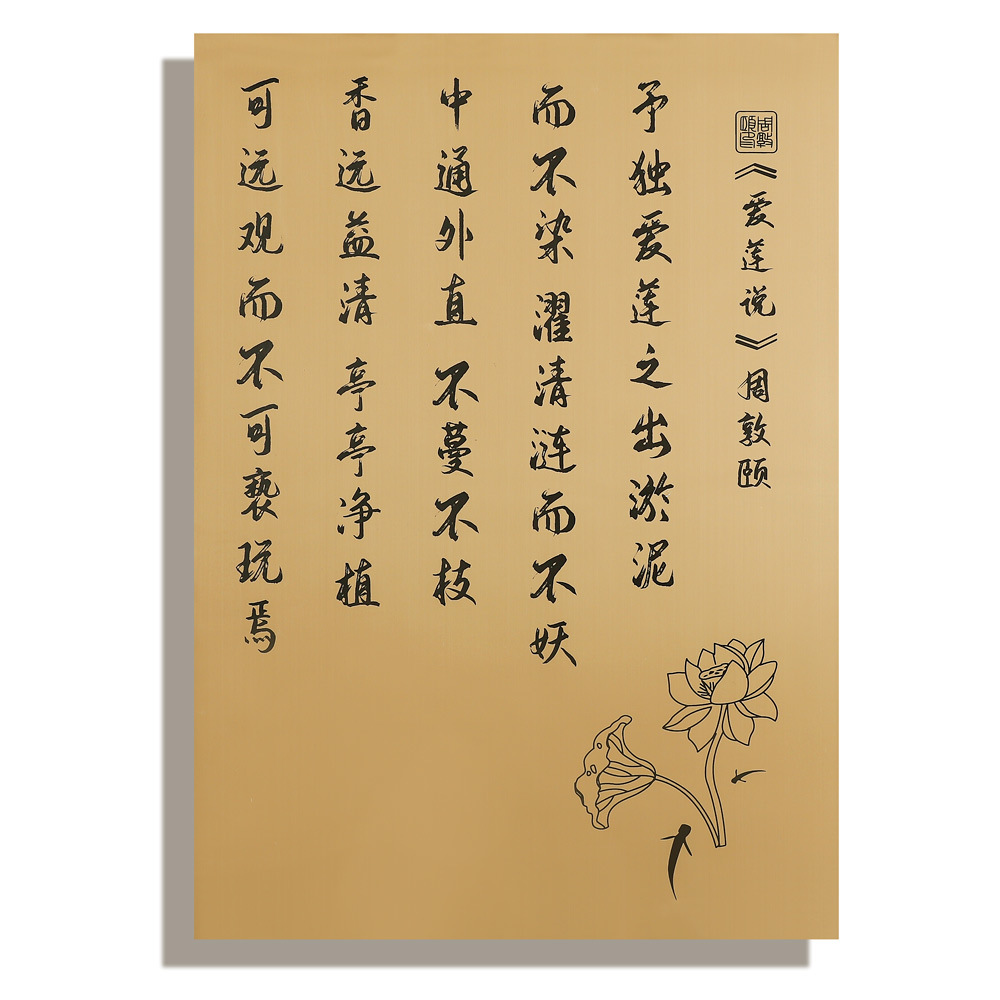 周敦颐印
《爱莲说》周敦颐
予独爱莲之出淤泥
而不染 濯清涟而不妖
中通外直 不蔓不枝
香远益清 亭亭净植
可远观而不可亵玩焉